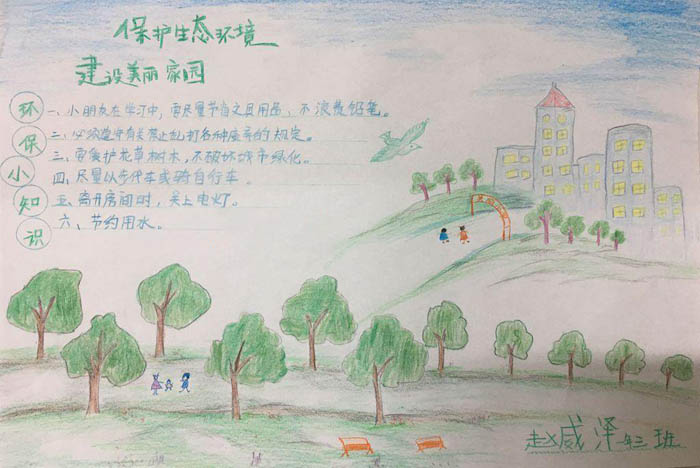 保护生态环境
建设美丽家园
环保小知识
一、小朋友在学习中，要尽量节省文具用品，不浪费铅笔。
二、必须遵守有关禁止乱打各种废弃的规定。
三、要爱护花草树木，不破坏城市绿化。
四、尽量以步代车或骑自行车。
五、离开房间时，关上电灯。
六、节约用水。
赵威泽 三班